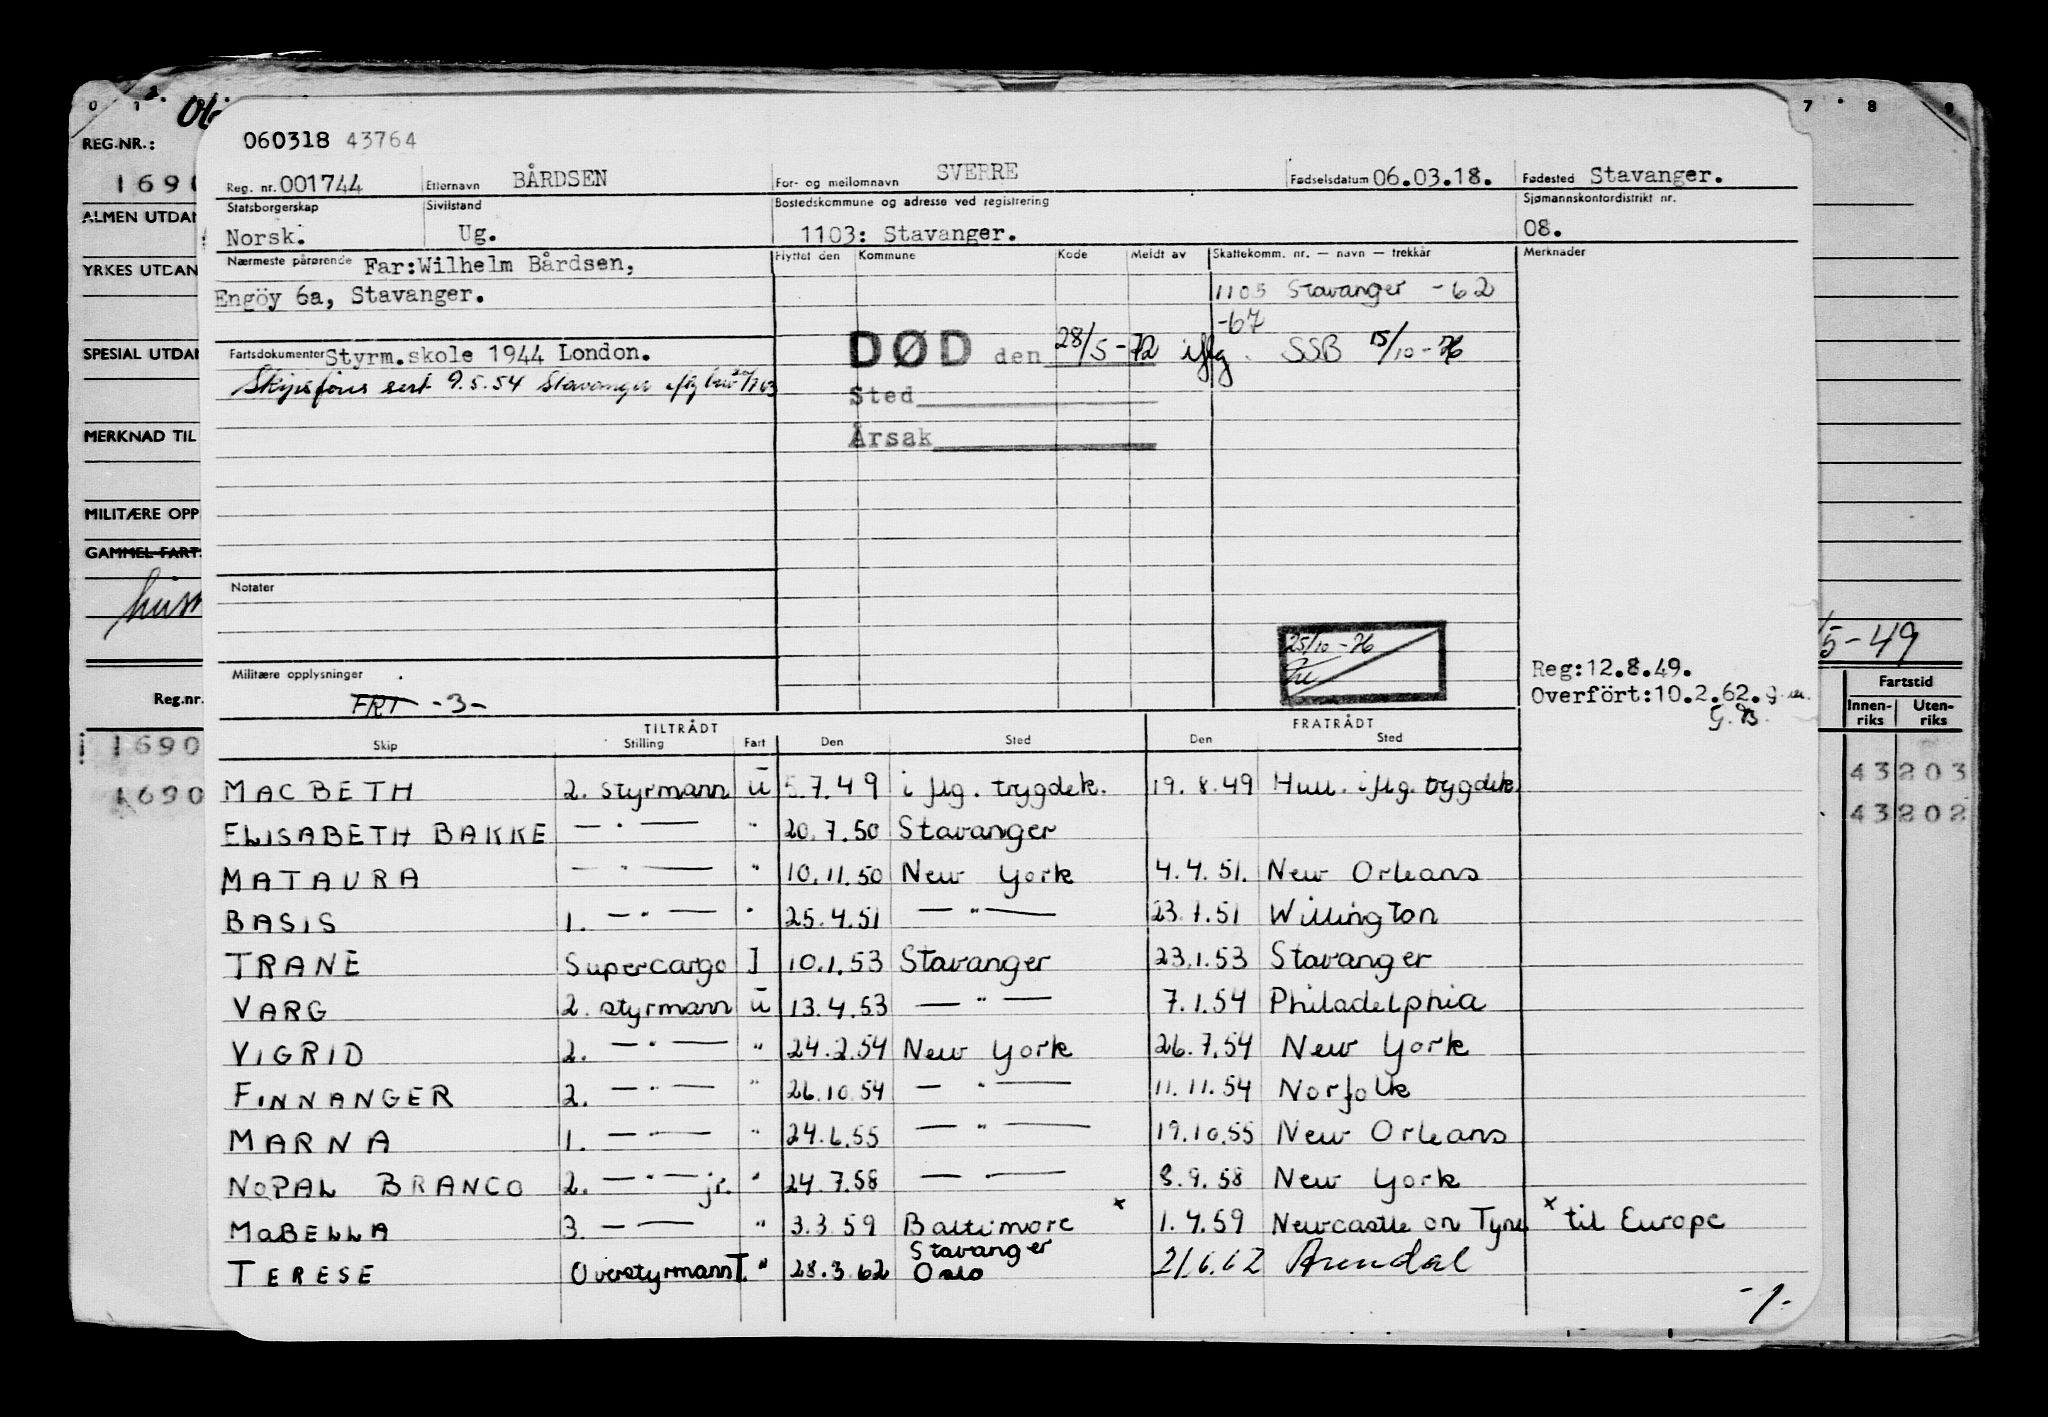 0 1 7 8 9
060318 43764
REG.NR.:
1690
Reg. nr. 001744 Etternavn BÅRDSEN For- og mellomnavn SVERRE Fødselsdatum 06.03.18. Fødested Stavanger.
ALMEN UTDAN
Statsborgerskap Sivilstand Bostedskommune og adresse ved registrering Sjømannskontordistrikt nr.
Norsk. Ug. 1103: Stavanger. 08.
YRKES UTDAN
Nærmeste pårørende Far:Wilhelm Bårdsen, Flyttet den Kommune Kode Meldt av Skattekomm. nr. — navn — trekkår Merknader
Engöy 6a, Stavanger. 1103 Stavanger -62
-67
SPESIAL UTDAN
Fartsdokumenter Styrm.skole 1944 London. DØD den 28/5-72 iflg. SSB 15/10-76
Skipsførers sert 9.5.54 Stavanger
Sted
MERKNAD TIL
Årsak
MILITÆRE OPP
GAMMEL FART
Notater
25/10-76
/5-49
Militære opplysninger
FRT -3-
Reg:12.8.49.
Overfört:10.2.62.
G.B.
Reg.nr. Fartstid
Innen-riks Uten-riks
TILTRÅDT FRATRÅDT
Skip Stilling Fart Den Sted Den Sted
1690 43203
1690 43202
MACBETH 2. styrmann U 5.7.49 i flg. trygdek. 19.8.49 Hull. iflg. trygdek.
ELISABETH BAKKE — " — " 20.7.50 Stavanger
MATAURA — " — " 10.11.50 New York 4.4.51. New Orleans
BASIS 1. — " — " 25.4.51 — " — 23.7.51 Willington
TRANE Supercargo I 10.1.53 Stavanger 23.1.53 Stavanger
VARG 2. styrmann U 13.4.53 — " — 7.1.54 Philadelphia
VIGRID 2. — " — " 24.2.54 New York 26.7.54 New York
FINNANGER 2. — " — " 26.10.54 — " — 11.11.54 Norfolk
MARNA 1. — " — " 24.6.55 — " — 19.10.55 New Orleans
NOPAL BRANCO 2. — " — jr. " 24.7.58 — " — 8.9.58 New York
MABELLA 3. — " — " 3.3.59 Baltimore x 1.4.59 Newcastle on Tyne x til Europe
Stavanger
TERESE Overstyrmann T. " 28.3.62 Oslo 21.6.62 Arendal
-1-